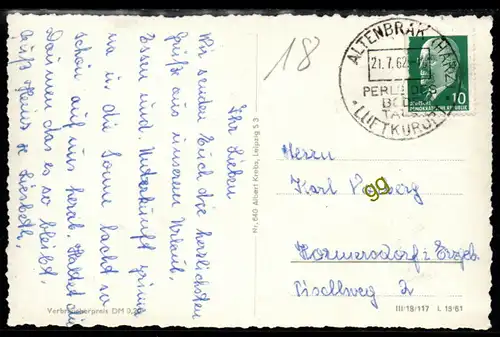 18
ALTENBRAK (HARZ)
21.7.62
PERLE DES
BODE
TALES
LUFTKURORT
10
DEUTSCHE
DEMOKRATISCHE REPUBLIK
Ihr Lieben
Wir senden Euch die herzlichsten
Grüße aus unserem Urlaub.
Essen und Unterkunft prima
na u. die Sonne lacht so
schön auf uns herab. Haltet die
Daumen das es so bleibt.
Gruß Heinz u. Liesbeth.
Verbraucherpreis DM 0,20
Nr. 640 Albert Krebs, Leipzig S 3
Herrn
Karl
gg
Hormersdorf i. Erzgeb.
Pischlweg 2
III/18/117 L 15/61